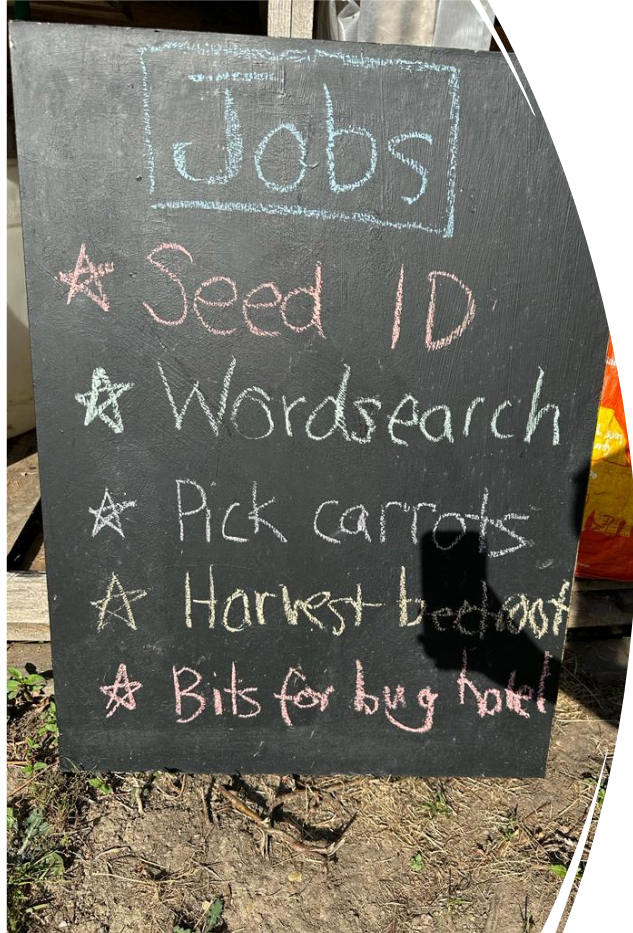 Jobs
Seed ID
Wordsearch
Pick carrots
Harvest beetroot
Bits for bug hotel